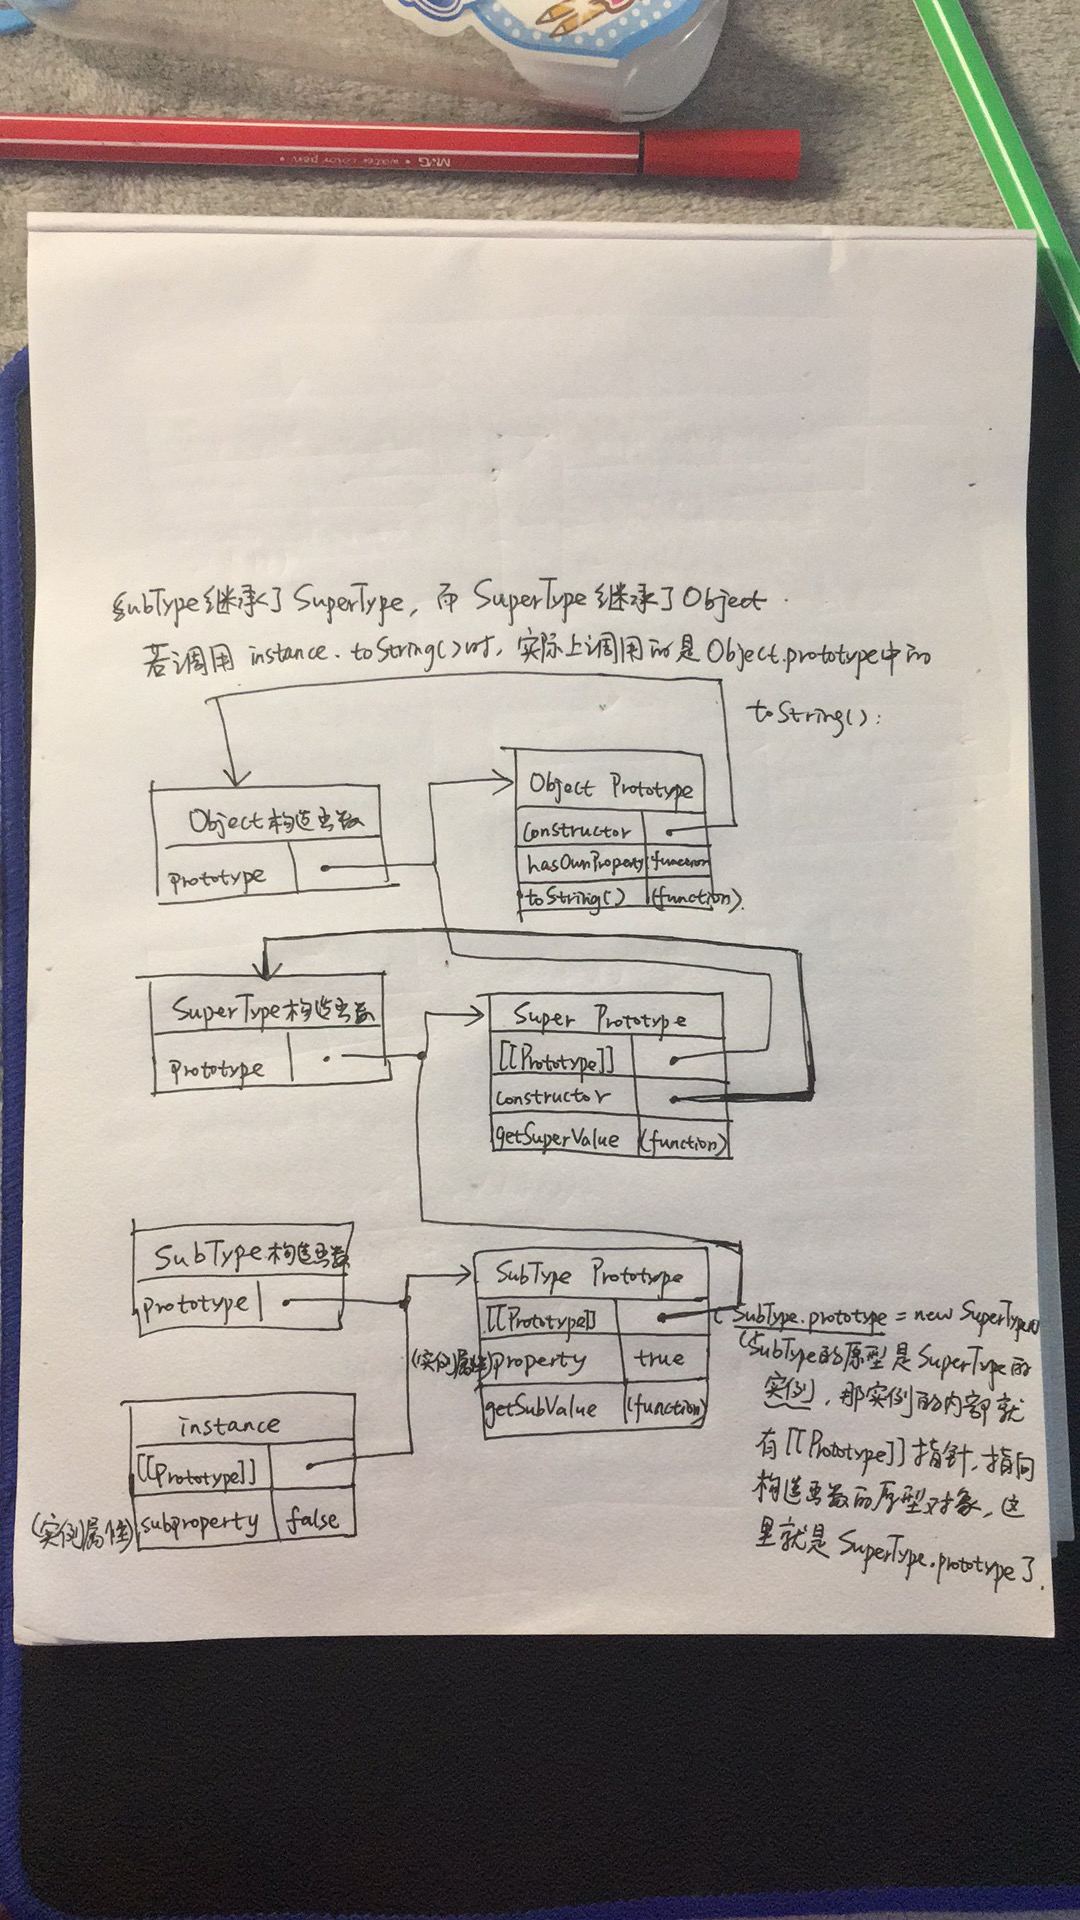 M&G • water color pen •
SubType继承了SuperType，而 SuperType继承了Object.
若调用 instance.toString()时，实际上调用的是Object.prototype中的
toString():
Object构造函数
prototype
Object Prototype
constructor
hasOwnProperty (function
toString() (function).
SuperType构造函数
prototype
Super Prototype
[[Prototype]]
constructor
getSuperValue (function)
SubType构造函数
prototype
SubType Prototype
[[Prototype]]
(实例属性)property true
getSubValue (function)
instance
[[Prototype]]
(实例属性)subproperty false
(SubType.prototype = new SuperType()
(SubType的原型是SuperType的
实例，那实例的内部就
有[[Prototype]]指针，指向
构造函数的原型对象，这
里就是SuperType.prototype了.